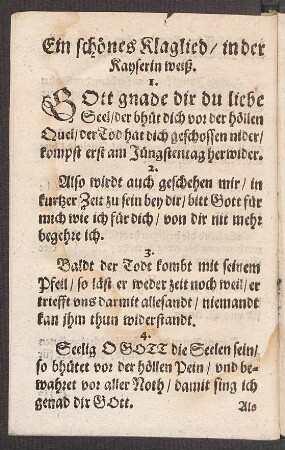 Ein schönes Klaglied / in der
Kayserin weiß.
1.
GOtt gnade dir du liebe
Seel / der bhüt dich vor der höllen
Quel / der Tod hat dich geschossen nider /
kompst erst am Jüngstentag herwider.
2.
Also wirdt auch geschehen mir / in
kurtzer Zeit zu sein bey dir / bitt Gott für
mich wie ich für dich / von dir nit mehr
begehre ich.
3.
Baldt der Todt kombt mit seinem
Pfeil / so läst er weder zeit noch weil / er
triefft uns darmit allesandt / niemandt
kan jhm thun widerstandt.
4.
Seelig O GOTT die Seelen sein /
so bhütet vor der höllen Pein / und be-
wahret vor aller Noth / damit sing ich
genad dir GOtt.
Als